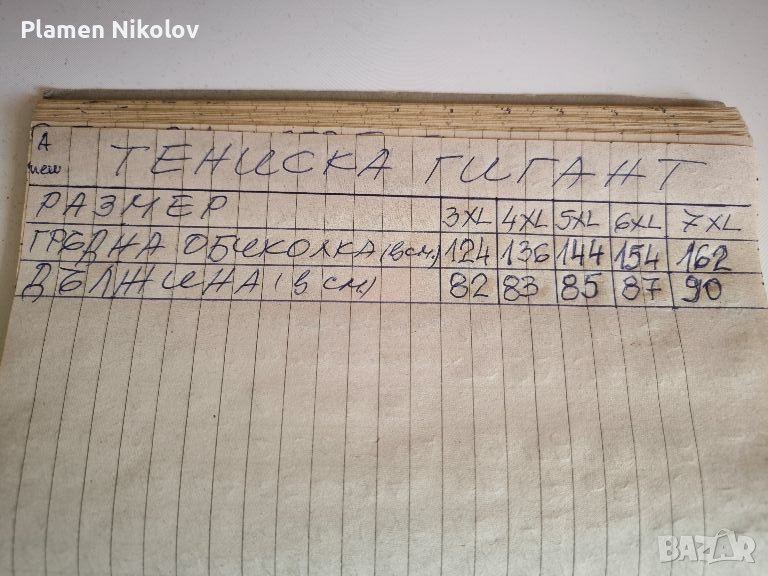 Plamen Nikolov
А
ТЕНИСКА ГИГАНТ
РАЗМЕР 3XL 4XL 5XL 6XL 7XL
ГРЪДНА ОБИКОЛКА (в см.) 124 136 144 154 162
ДЪЛЖИНА (в см) 82 83 85 87 90
BAZAR